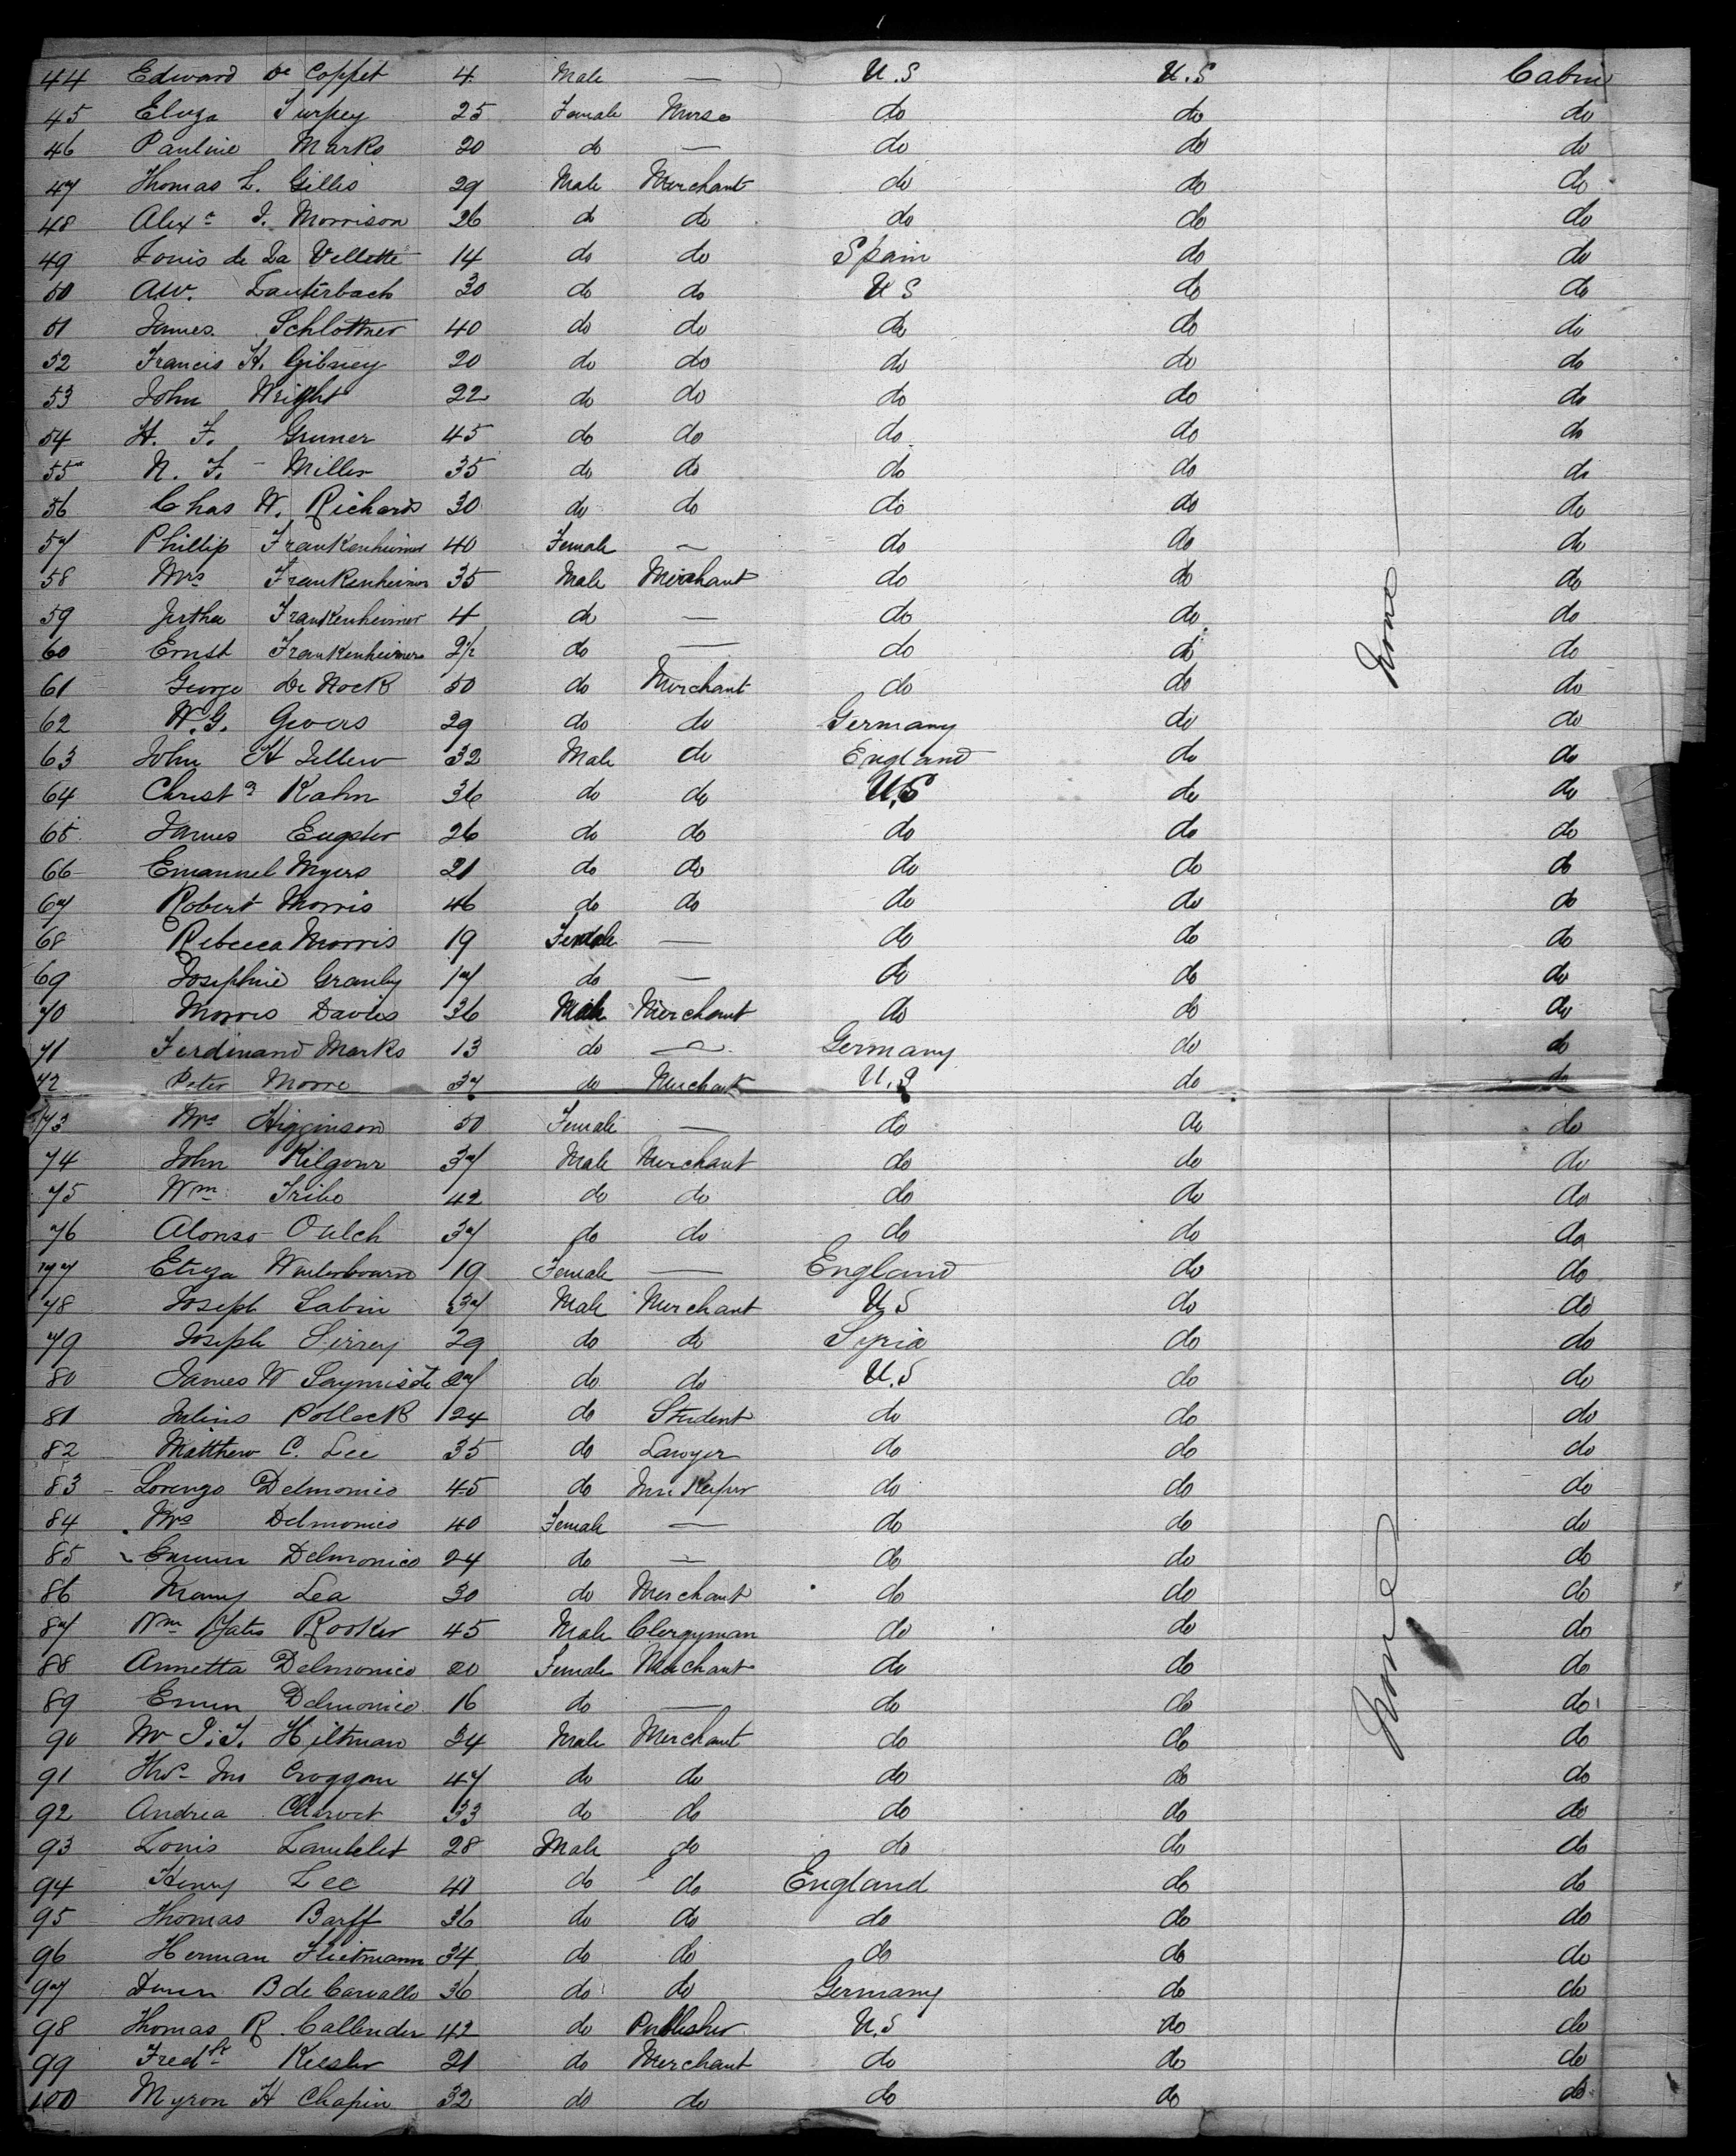 44 Edward De Coppet 4 Male — U.S U.S Cabin
45 Eliza Turpey 25 Female Nurse do do do
46 Pauline Marks 20 do — do do do
47 Thomas L. Gillis 29 Male Merchant do do do
48 Alexr J. Morrison 26 do do do do do
49 Louis de La Vellette 14 do do Spain do do
50 AW. Lauterbach 30 do do U S do do
51 James Schlottner 40 do do do do do
52 Francis H. Gibney 20 do do do do do
53 John Wright 22 do do do do do
54 H. F. Gruner 45 do do do do do
55 N. F. Miller 35 do do do do do
56 Chas W. Richards 30 do do do do do
57 Phillip Frankenheimer 40 Female — do do do
58 Mrs Frankenheimer 35 Male Merchant do do do
59 Frankenheimer 4 do — do do None do
60 Ernst Frankenheimer 2/12 do — do do do
61 George De Nock 50 do Merchant do do do
62 W.G. Gevers 29 do do Germany do do
63 John H 32 Male do England do do
64 Christn Kahn 36 do do U.S do do
65 James Eugster 26 do do do do do
66 Emanuel Myers 21 do do do do do
67 Robert Morris 46 do do do do do
68 Rebecca Morris 19 Female — do do do
69 Josephine Granby 17 do — do do do
70 Morris Davies 36 Male Merchant do do do
71 Ferdinand Marks 13 do — Germany do do
72 Peter Moore 37 do Merchant U.S do do
73 Mrs Higginson 50 Female — do do do
74 John Kilgour 37 Male Merchant do do do
75 Wm Tribe 42 do do do do do
76 Alonso Oulch 37 do do do do do
77 Eliza Winterbourn 19 Female — England do do
78 Joseph Sabin 37 Male Merchant U S do do
79 Joseph 29 do do Syria do do
80 James W 27 do do U.S do do
81 Julius Pollock 24 do Student do do do
82 Matthew C. Lee 35 do Lawyer do do do
83 Lorenzo Delmonico 45 do Inn Keeper do do do
84 Mrs Delmonico 40 Female — do do do
85 Delmonico 24 do — do do do
86 Mary Lea 30 do Merchant do do do
87 Wm Yates Rooker 45 Male Clergyman do do None do
88 Annetta Delmonico 20 Female Merchant do do do
89 Delmonico 16 do — do do do
90 Mr Hiltman 24 Male Merchant do do do
91 Croggan 47 do do do do do
92 Andrea Charvet 33 do do do do do
93 Louis Lautelet 28 Male do do do do
94 Henry Lee 41 do do England do do
95 Thomas Barff 36 do do do do do
96 Herman Flietmann 34 do do do do do
97 B de Carvallo 36 do do Germany do do
98 Thomas R. Callender 42 do Publisher U.S do do
99 Fredk Kiesler 21 do Merchant do do do
100 Myron H Chapin 32 do do do do do